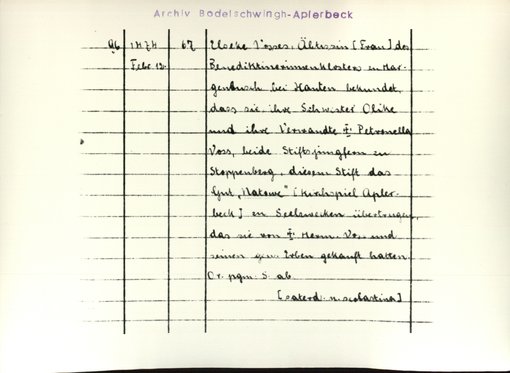 Archiv Bodelschwingh-Aplerbeck
96 1474 67 Voss, Äbtissin [Frau] des
Febr. 12. Benediktinerinnenklosters in Mar-
genbusch bei Xanten bekundet,
dass sie, ihre Schwester
und ihre Verwandte Petronella
Voss, beide Stiftsjungfern zu
Stoppenberg, diesem Stift das
Gut „Natowe“ [Kirchspiel Apler-
beck] zu Seelzwecken übertragen,
das sie von Herm. Voss und
seinen gen. Erben gekauft hatten.
Or. pgm. S. ab